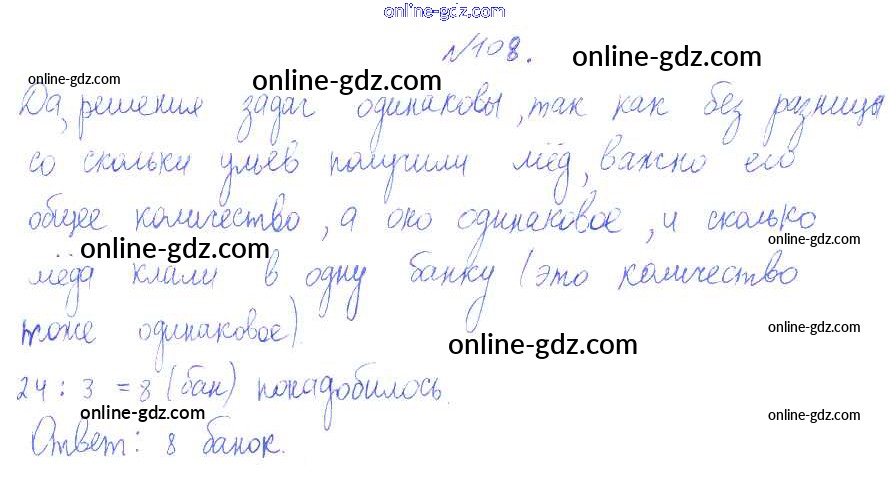 online-gdz.com
№108. online-gdz.com
online-gdz.com online-gdz.com
Да, решения задач одинаковы, так как без разницы
со скольки ульев получили мёд, важно его
общее количество, а оно одинаковое, и сколько
online-gdz.com online-gdz.com
мёда клали в одну банку (это количество
тоже одинаковое). online-gdz.com
online-gdz.com
24 : 3 = 8 (бан) понадобилось.
online-gdz.com online-gdz.com
Ответ: 8 банок.